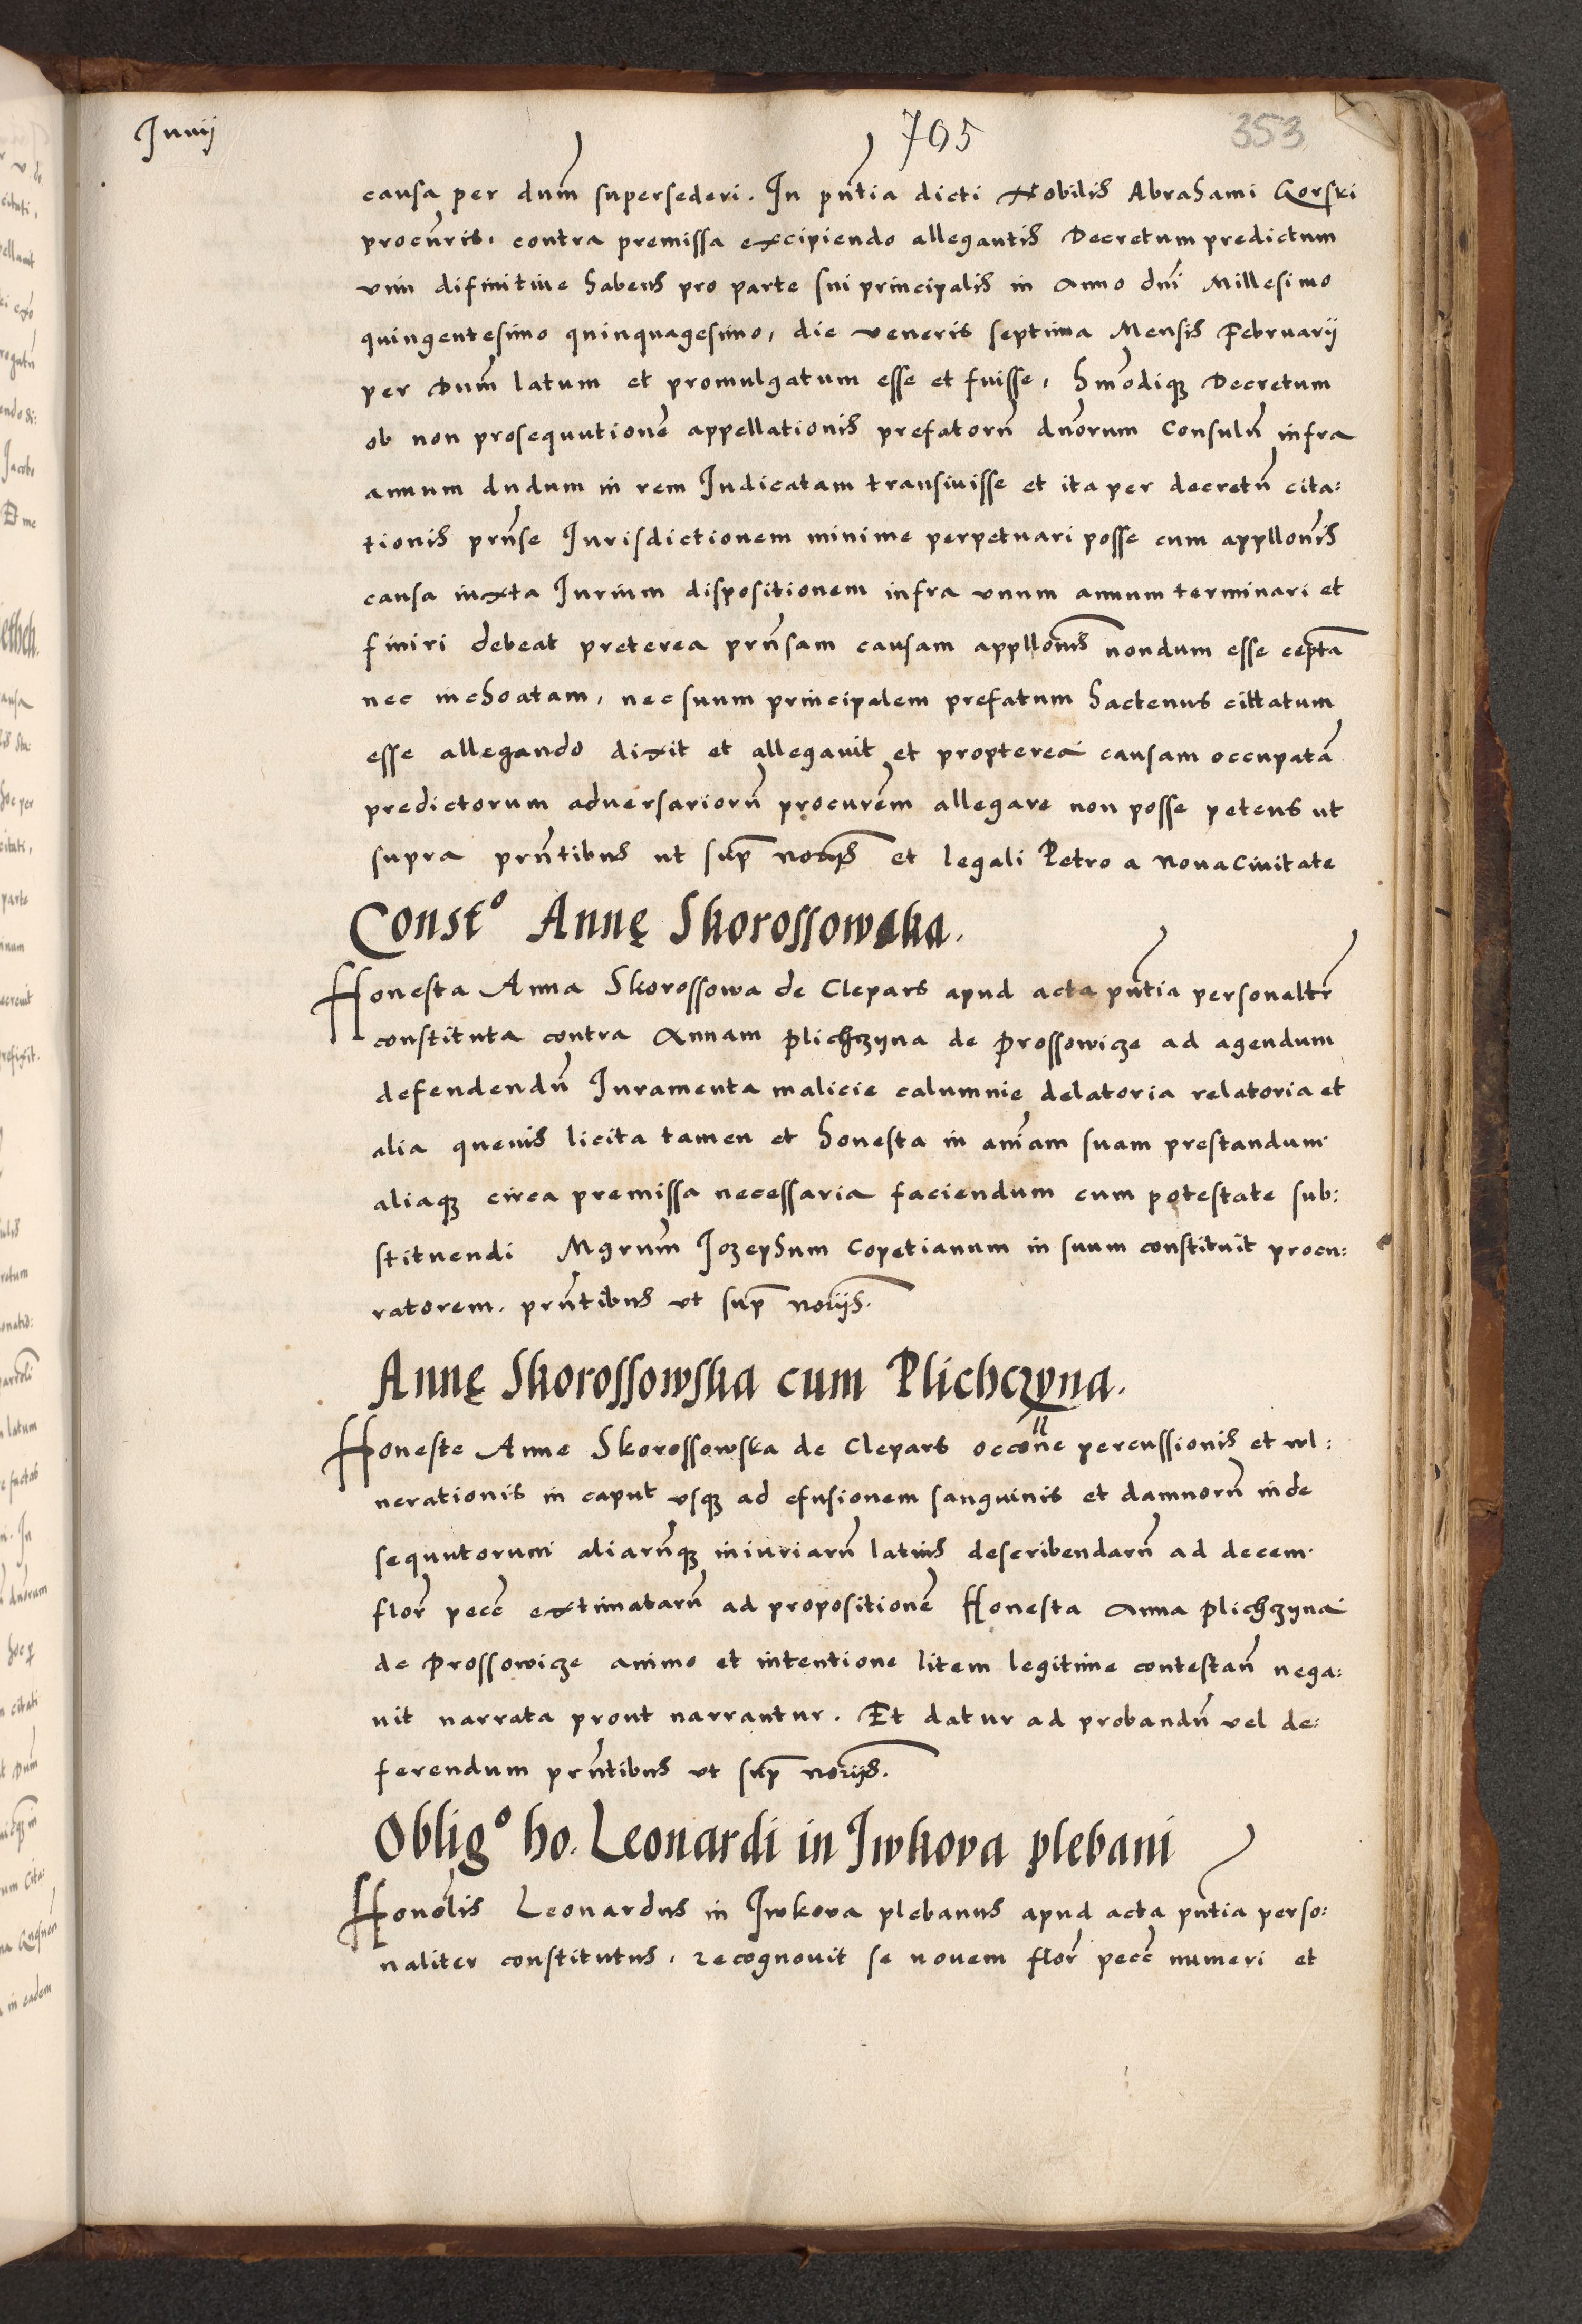 Junij
705
353
causa per dnm̄ supersederi. In pn̄tia dicti Nobilis Abrahami Gorski
procur̄ris, contra premissa excipiendo allegantis Decretum predictum
vim difinitive habens pro parte sui principalis in Anno dnī Millesimo
quingentesimo quinquagesimo, die veneris septima Mensis Februarij
per Dnm̄ latum et promulgatum esse et fuisse, hm̄odique Decretum
ob non prosequutionē appellationis prefatorū dnōrum Consulū infra
annum dudum in rem Judicatam transivisse et ita per decretū cita:
tionis prn̄se Jurisdictionem minime perpetuari posse cum appllon̄is
causa iuxta Jurium dispositionem infra unum annum terminari et
finiri debeat preterea prn̄sam causam appllonīs nondum esse ceptā
nec inchoatam, nec suum principalem prefatum hactenus cittatum
esse allegando dixit et allegavit et propterea causam occupatā
predictorum adversariorū procurēm allegare non posse petens ut
supra prn̄tibus ut sup̄ notarijs et legali Petro a Nova Civitate
Constᵒ Annę Skorossowska.
Honesta Anna Skorossowa de Clepars apud acta pn̄tia personaltr̄
constituta contra Annam Plichczyna de Prossowicze ad agendum
defendendū Juramenta malicie calumnie delatoria relatoria et
alia quevis licita tamen et honesta in anīam suam prestandum
aliaque circa premissa necessaria faciendum cum potestate sub:
stituendi Mgrum̄ Jozephum Copetianum in suum constituit procu:
ratorem. prn̄tibus ut sup̄ norijs.
Annę Skorossowska cum Plichczyna.
Honeste Anne Skorossowska de Clepars occōne percussionis et vul:
nerationis in caput usque ad efusionem sanguinis et damnorū inde
sequutorum aliarūque iniuriarū latius describendarū ad decem
flor̄ pecc̄ extimatarū ad propositionē Honesta Anna Plichczyna
de Prossowicze animo et intentione litem legitime contestan̄ nega:
vit narrata prout narrantur. Et datur ad probandū vel de:
ferendum prn̄tibus ut sup̄ norijs.
Obligᵒ ho. Leonardi in Iwkova plebani
Honōlis Leonardus in Iwkova plebanus apud acta pn̄tia perso:
naliter constitutus, recognovit se novem flor̄ pecc̄ numeri et